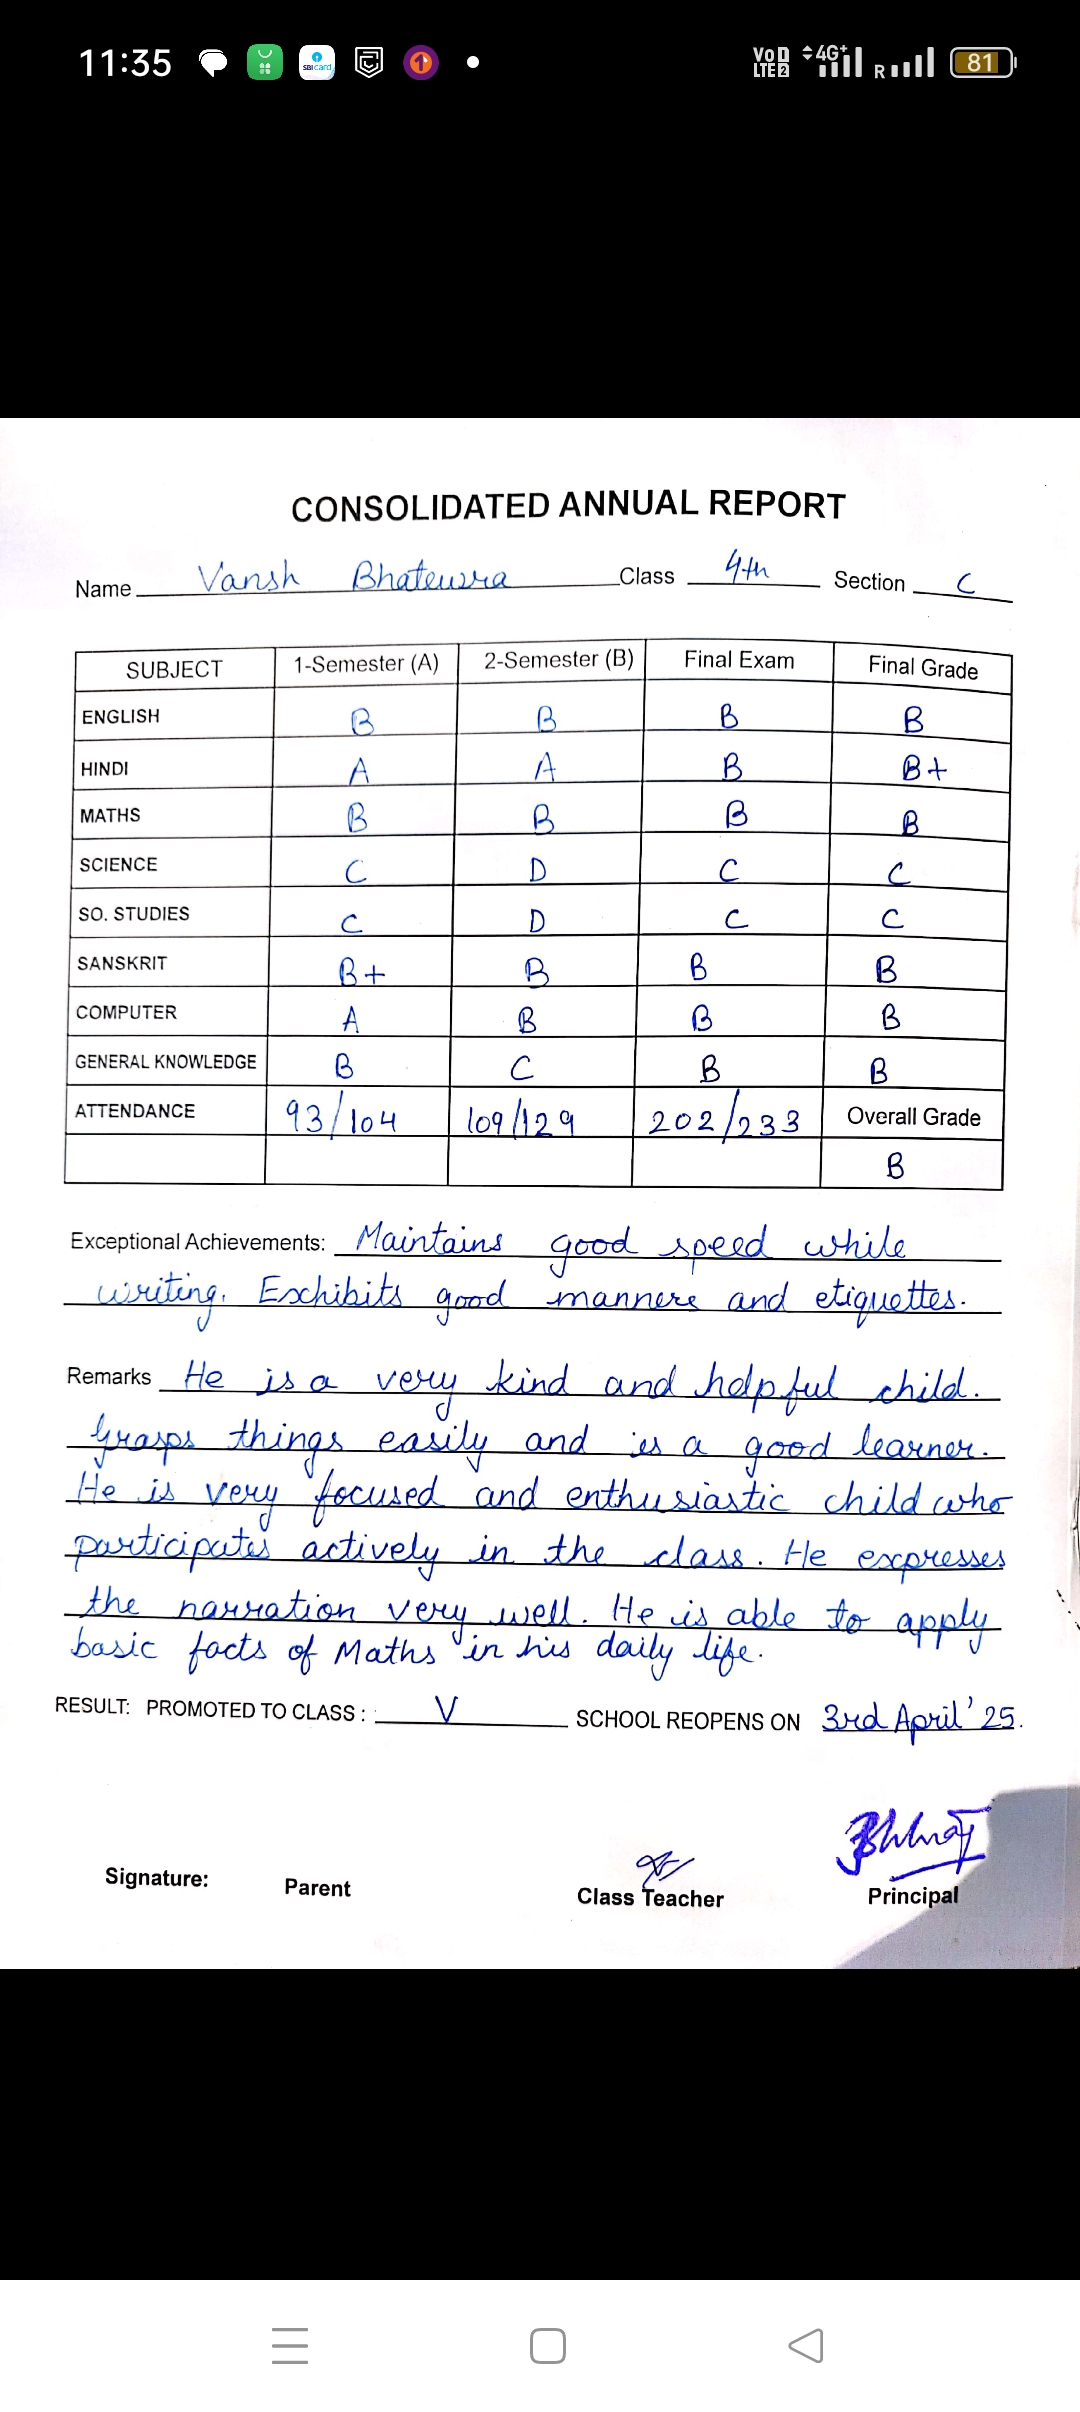 11:35
SBI card
VoD LTE 2 4G+ R 81
CONSOLIDATED ANNUAL REPORT
Name Vansh Bhatewra Class 4th Section C
SUBJECT 1-Semester (A) 2-Semester (B) Final Exam Final Grade
ENGLISH B B B B
HINDI A A B B+
MATHS B B B B
SCIENCE C D C C
SO. STUDIES C D C C
SANSKRIT B+ B B B
COMPUTER A B B B
GENERAL KNOWLEDGE B C B B
ATTENDANCE 93/104 109/129 202/233 Overall Grade
B
Exceptional Achievements: Maintains good speed while
writing. Exhibits good manners and etiquettes.
Remarks He is a very kind and helpful child.
Grasps things easily and is a good learner.
He is very focused and enthusiastic child who
participates actively in the class. He expresses
the narration very well. He is able to apply
basic facts of Maths in his daily life.
RESULT: PROMOTED TO CLASS : V SCHOOL REOPENS ON 3rd April' 25.
Signature: Parent Class Teacher Principal